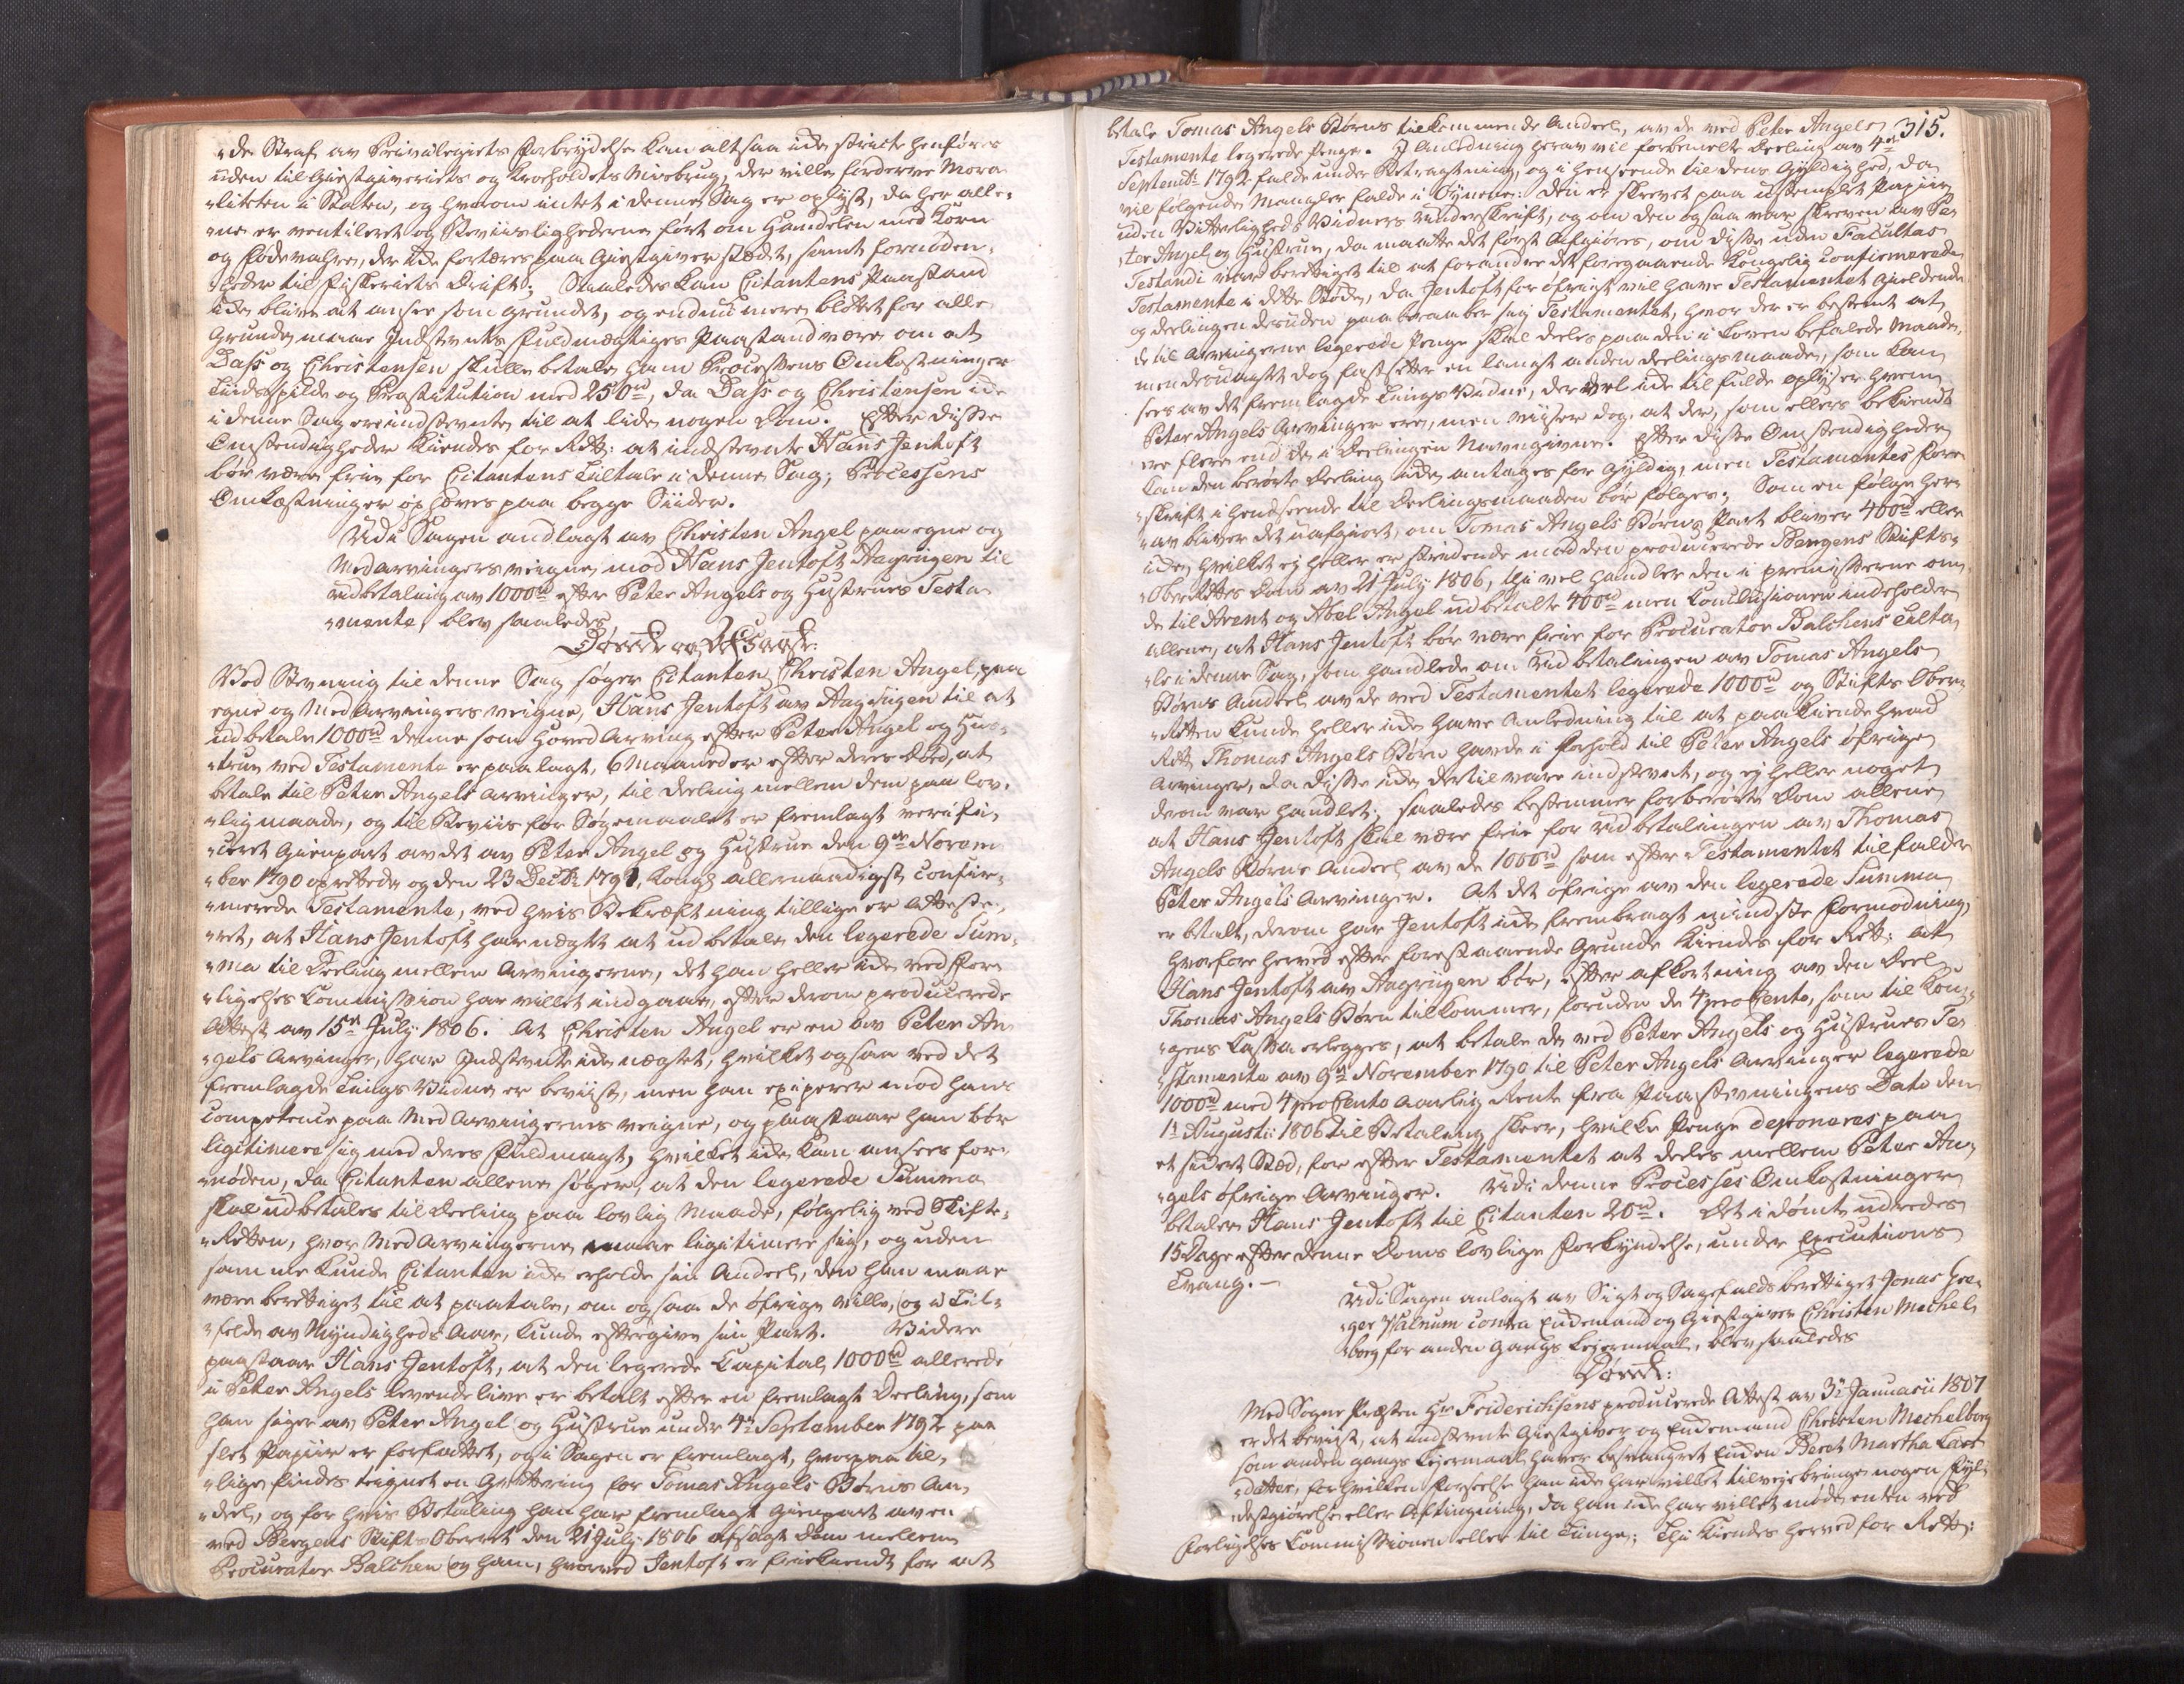 de Straf av Privilegiets Forbrydelse kan altsaa ikke stricte henføres
uden til Giestgiveriets og Kroeholdets Misbrug, der ville forderve Mora-
liteten i Staten, og hvorom intet i denne Sag er oplyst, da her alle-
ne er ventileret og Beviisligheder ført om Handelen med Korn
og Fødevahre, der ikke fortæres paa Giestgiverstædet, samt fornøden-
heder til Fiskeriets Drift; Saaledes kan Citantens Paastand
ikke blive at ansee som grundet, og endnu mere bløttet for alle
Grunde maae Indstevnte Fuldmægtiges Paastand være om at
Dass og Christensen skulle betale ham Processens Omkostninger
Tiidsspilde og Prostitution med 250rd, da Dass og Christensen ikke
i denne Sag ere indstevnte til at lide nogen Dom. Efter disse
Omstendigheder kiendes for Rett: at indstevnte Hans Jentoft
bør være frie for Citantens Tiltale i denne Sag; Processens
Omkostninger ophæves paa begge Siider.
Udi Sagen anlagt av Christen Angel paa egne og
Medarvingers veigne, mod Hans Jentoft Aagrüigen til
udbetaling av 1000rd efter Peter Angels og Hustrues Testa-
mente, blev saaledes
Dømt og Afsagt:
Ved Stevning til denne Sag søger Citanten Christen Angel, paa
egne og Med Arvingers veigne, Hans Jentoft av Aagrüigen til at
udbetale 1000rd denne som Hoved Arving efter Peter Angel og Hus-
true ved Testamente er paalagt, 6 Maaneder efter deres Død, at
betale til Peter Angels Arvinger, til deeling mellem dem paa lov-
lig maade, og til Beviis for Søgemaalet er fremlagt verifi-
ceret Gienpart av det av Peter Angel og Hustrue den 9de Novem-
ber 1790 oprettede og den 23 Decbr 1791, Kongl allernaadigst confir-
merede Testamente, ved hvis Bekræftning tillige er Atteste-
ret, at Hans Jentoft har nægtet at udbetale den legerede Sum-
ma til Deeling mellem Arvingerne, det han heller ikke ved For-
ligelses Commission har villet indgaae, efter derom producerede
Attest av 15de July 1806. At Christen Angel er en av Peter An-
gels Arvinger, har Indstevnte ikke nægtet, hvilket ogsaa ved det
fremlagde Tings Vidne er beviist, men han exiperer mod hans
Competence paa Med Arvingernes veigne, og paastaar han bør
legitimere sig med deres Fuldmagt, hvilket ikke kan ansees for-
nøden, da Citanten allene søger, at den legerede Summa
skal udbetales til Deeling paa lovlig Maade, følgelig ved Skifte-
Retten, hvor Med Arvingerne maae legitimere sig, og uden
samme kunde Citanten ikke erholde sin Andeel, den han maae
være berettiget til at paatale, om ogsaa de øfrige ville, (og i Til-
felde av Myndigheds Aar, kunde eftergive sin Part. Videre
paastaar Hans Jentoft, at den legerede Capital 1000rd allerede
i Peter Angels levende live er betalt efter en fremlagt Deeling, som
han siger av Peter Angel og Hustrue under 4de September 1792 paa
slet Papiir er forfattet, og i Sagen er fremlagt, hvorpaa til-
lige findes teignet en Qvittering for Tomas Angels Børns An-
deel, og for hvis Betaling han har fremlagt Gienpart av en
ved Bergens Stift-Oberret den 21 July 1806 afsagt Dom mellem
Procurator Balchen og ham, hvorved Jentoft er friekiendt for at
315.
betale Tomas Angels Børns tilkommende Andeel, av de ved Peter Angels
Testamente legerede Penge. I Anledning herav vil forbemelte Deeling av 4de
Septembr 1792 falde under Betragtning, og i henseende til dens Gyldighed, da
vil følgende Mangler falde i Øynene: den er skrevet paa ustemplet Papiir
uden Vitterligheds Vidners Underskrift, og om den ogsaa var skreven av Pe-
ter Angel og Hustrue, da maatte det først Afgiøres, om disse uden Facultas
Testandi vare berettiget til at forandre det foregaaende Kongelig confirmerede
Testamente i dette Støde, da Jentoft for øfrigt vil have Testamentet gieldende
og deelingen desuden paaberaaber sig Testamentet, hvor der er bestemt at
de til Arvingerne legerede Penge skal deeles paa den i Loven befalede Maade,
men desuagtet dog fastsetter en langt anden deelingsmaade, som kan
sees av det fremlagde Tings Vidne, der vel ikke tilfulde oplyser hvem
Peter Angels Arvinger ere, men viiser dog at de, som ellers bekiendt
ere flere end de i Deelingen Navngivne. Efter disse Omstendigheder
kan den berørte Deeling ikke antages for Gyldig, men Testamentes For-
skrift i henseende til Deelingsmaaden bør følges; Som en følge her-
av bliver det uafgiort, om Tomas Angels Børns Part bliver 400rd eller
ikke, hvilket ej heller er stridende mod den producerede Bergens Stifts-
Ober Rettes Dom av 21 July 1806, thi vel handler den i premisserne om
de til Arent og Abel Angel udbetalte 400rd men Conclusionen indeholder
allene, at Hans Jentoft bør være frie for Procurator Balchens Tilta-
le i denne Sag, som handlede om Udbetalingen av Tomas Angels
Børns Andeel av de ved Testamentet legerede 1000rd og Stifts Ober-
Retten kunde heller ikke have Anledning til at paakiende hvad
Rett Thomas Angels Børn havde i Forhold til Peter Angels øfrige
Arvinger, da disse ikke dertil vare indstevnt, og ej heller noget
derom var handlet; saaledes bestemmer forberørte Dom allene
at Hans Jentoft skal være frie for Udbetalingen av Thomas
Angels Børns Andeel av de 1000rd som efter Testamentet tilfalder
Peter Angels Arvinger. At det øfrige av den legerede Summa
er betalt, derom har Jentoft ikke frembragt mindste Formodning,
hvorfore herved efter forestaaende Grunde kiendes for Rett: At
Hans Jentoft av Aagrüigen bør, efter afkortning av den Deel
Thomas Angels Børn tilkommer, foruden de 4 pro Cento, som til Kon-
gens Cassa erlegges, at betale de ved Peter Angels og Hustrues Te-
stamente av 9de November 1790 til Peter Angels Arvinger legerede
1000rd med 4 pro Cento aarlig Rente fra Paastevningens Dato den
1te Augustii 1806 til Betaling skeer, hvilke Penge deponeres paa
et sikert Stæd, for efter Testamentet at deeles mellem Peter An-
gels øfrige Arvinger. Udi denne Processes Omkostninger
betaler Hans Jentoft til Citanten 20rd. Det idømte udredes
15 Dage efter denne Doms lovlige Forkyndelse, under Executions
Tvang.
Udi Sagen anlagt av Sigt og Sagefalds berettiget Jonas Hee-
ger Walnum contra Enkemand og Giestgiver Christen Mechel-
borg for anden Gangs Leiermaal, blev saaledes
Dømt:
Med Sogne Præsten Hr Friderichsens producerede Attest av 3de Januarii 1807
er det beviist, at indstevnte Giestgiver og Enkemand Christen Mechelborg
som anden gangs Leiermaal haver besvangret Enken Beret Martha Lars-
datter, for hvilken Forseelse han ikke har villet tilveje bringe nogen Fyl-
destgiørelse eller Aftingning, da han ikke har villet møde enten ved
Forligelses Commissionen eller til Tinge; Thi kiendes herved for Rett: